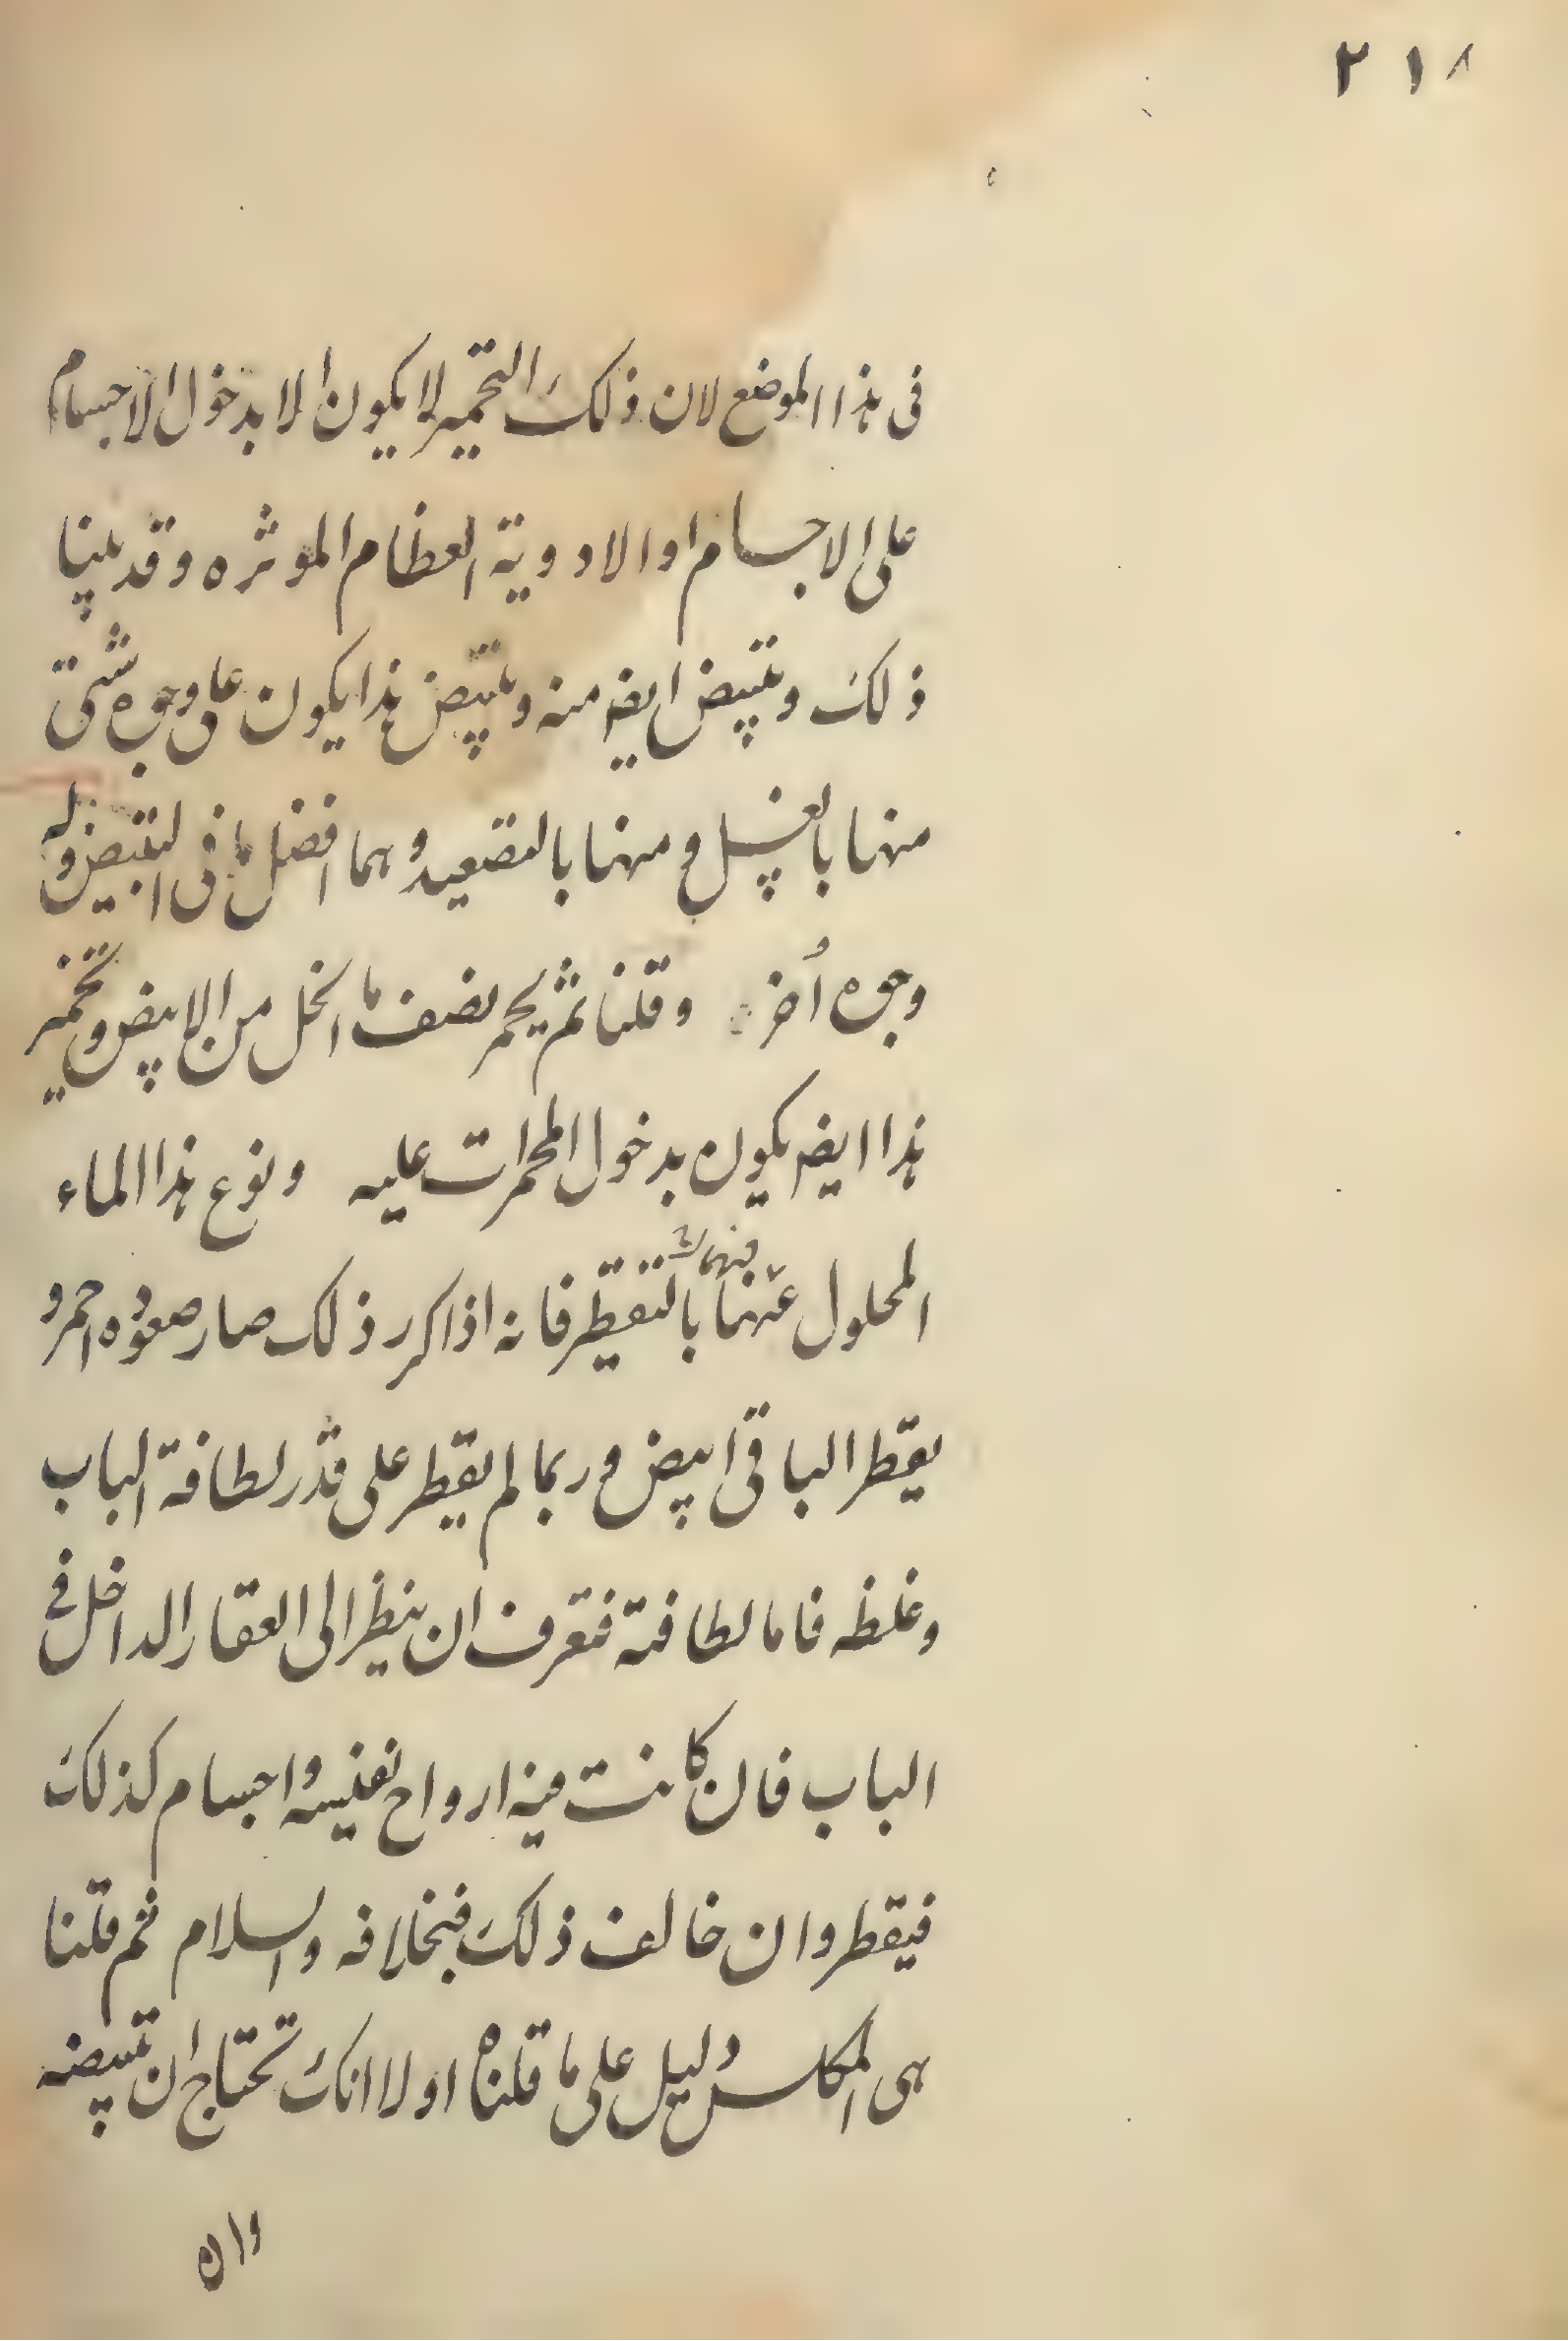 ٢١٨
فى هذا الموضع لان ذلك التحمير لا يكون الا بدخول الاجسام
على الاجسام او الادوية العظام الموثره وقد بينا
ذلك وتبيض ايضا منه وتبيض هذا يكون على وجوه شتى
منها بالغسل ومنها بالتصعيد وهما افضل ما فى التبيض وله
وجوه اُخر وقلنا ثم يحمر نصف ما انحل من الابيض وتحمير
هذا ايضا يكون بدخول المحمرات عليه ونوع هذا الماء
المحلول بالتقطير فانه اذا كرر ذلك صار صعوده احمر و
يقطر الباقى ابيض وربما لم يقطر على قدر لطافة الباب
وغلظه فاما لطافته فتعرف ان ينظر الى العقار الداخل فى
الباب فان كانت فيه ارواح نفيسه واجسام كذلك
فيقطر وان خالف ذلك فبخلافه والسلام ثم قلنا
هى المكلس دليل على ما قلناه اولا انك تحتاج ان تبيضه
وان